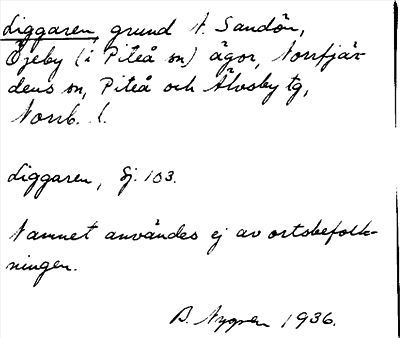 Liggaren, grund N. Sandön,
Öjeby (i Piteå sn) ägor, Norrfjär
dens sn, Piteå och Älvsby tg,
Norrb. l.
Liggaren, Sj. 103.
Namnet användes ej av ortsbefolk-
ningen.
B. Nygren 1936.